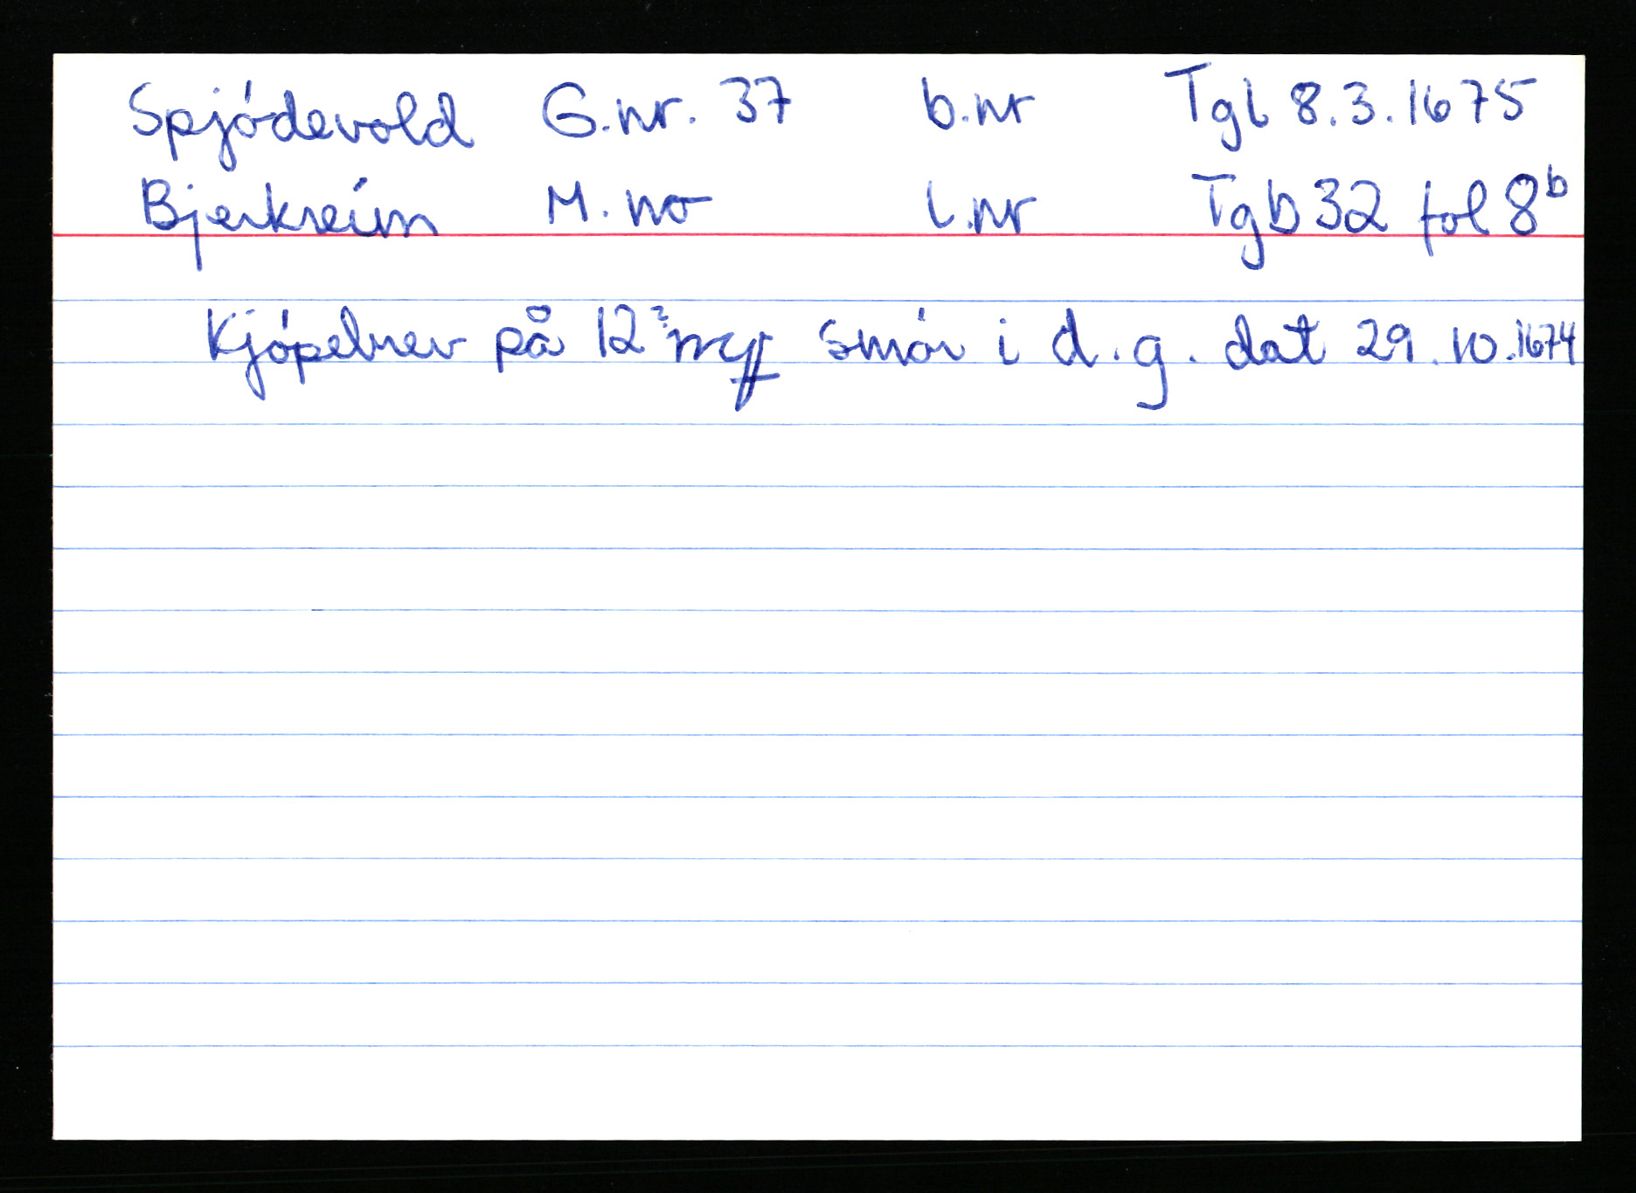 Spjódevold G.nr. 37 b.nr Tgl 8.3.1675
Bjerkreim M.no l.nr Tgb 32 fol 8b
Kjópebrev på 12 smór i d.g. dat 29.10.1674